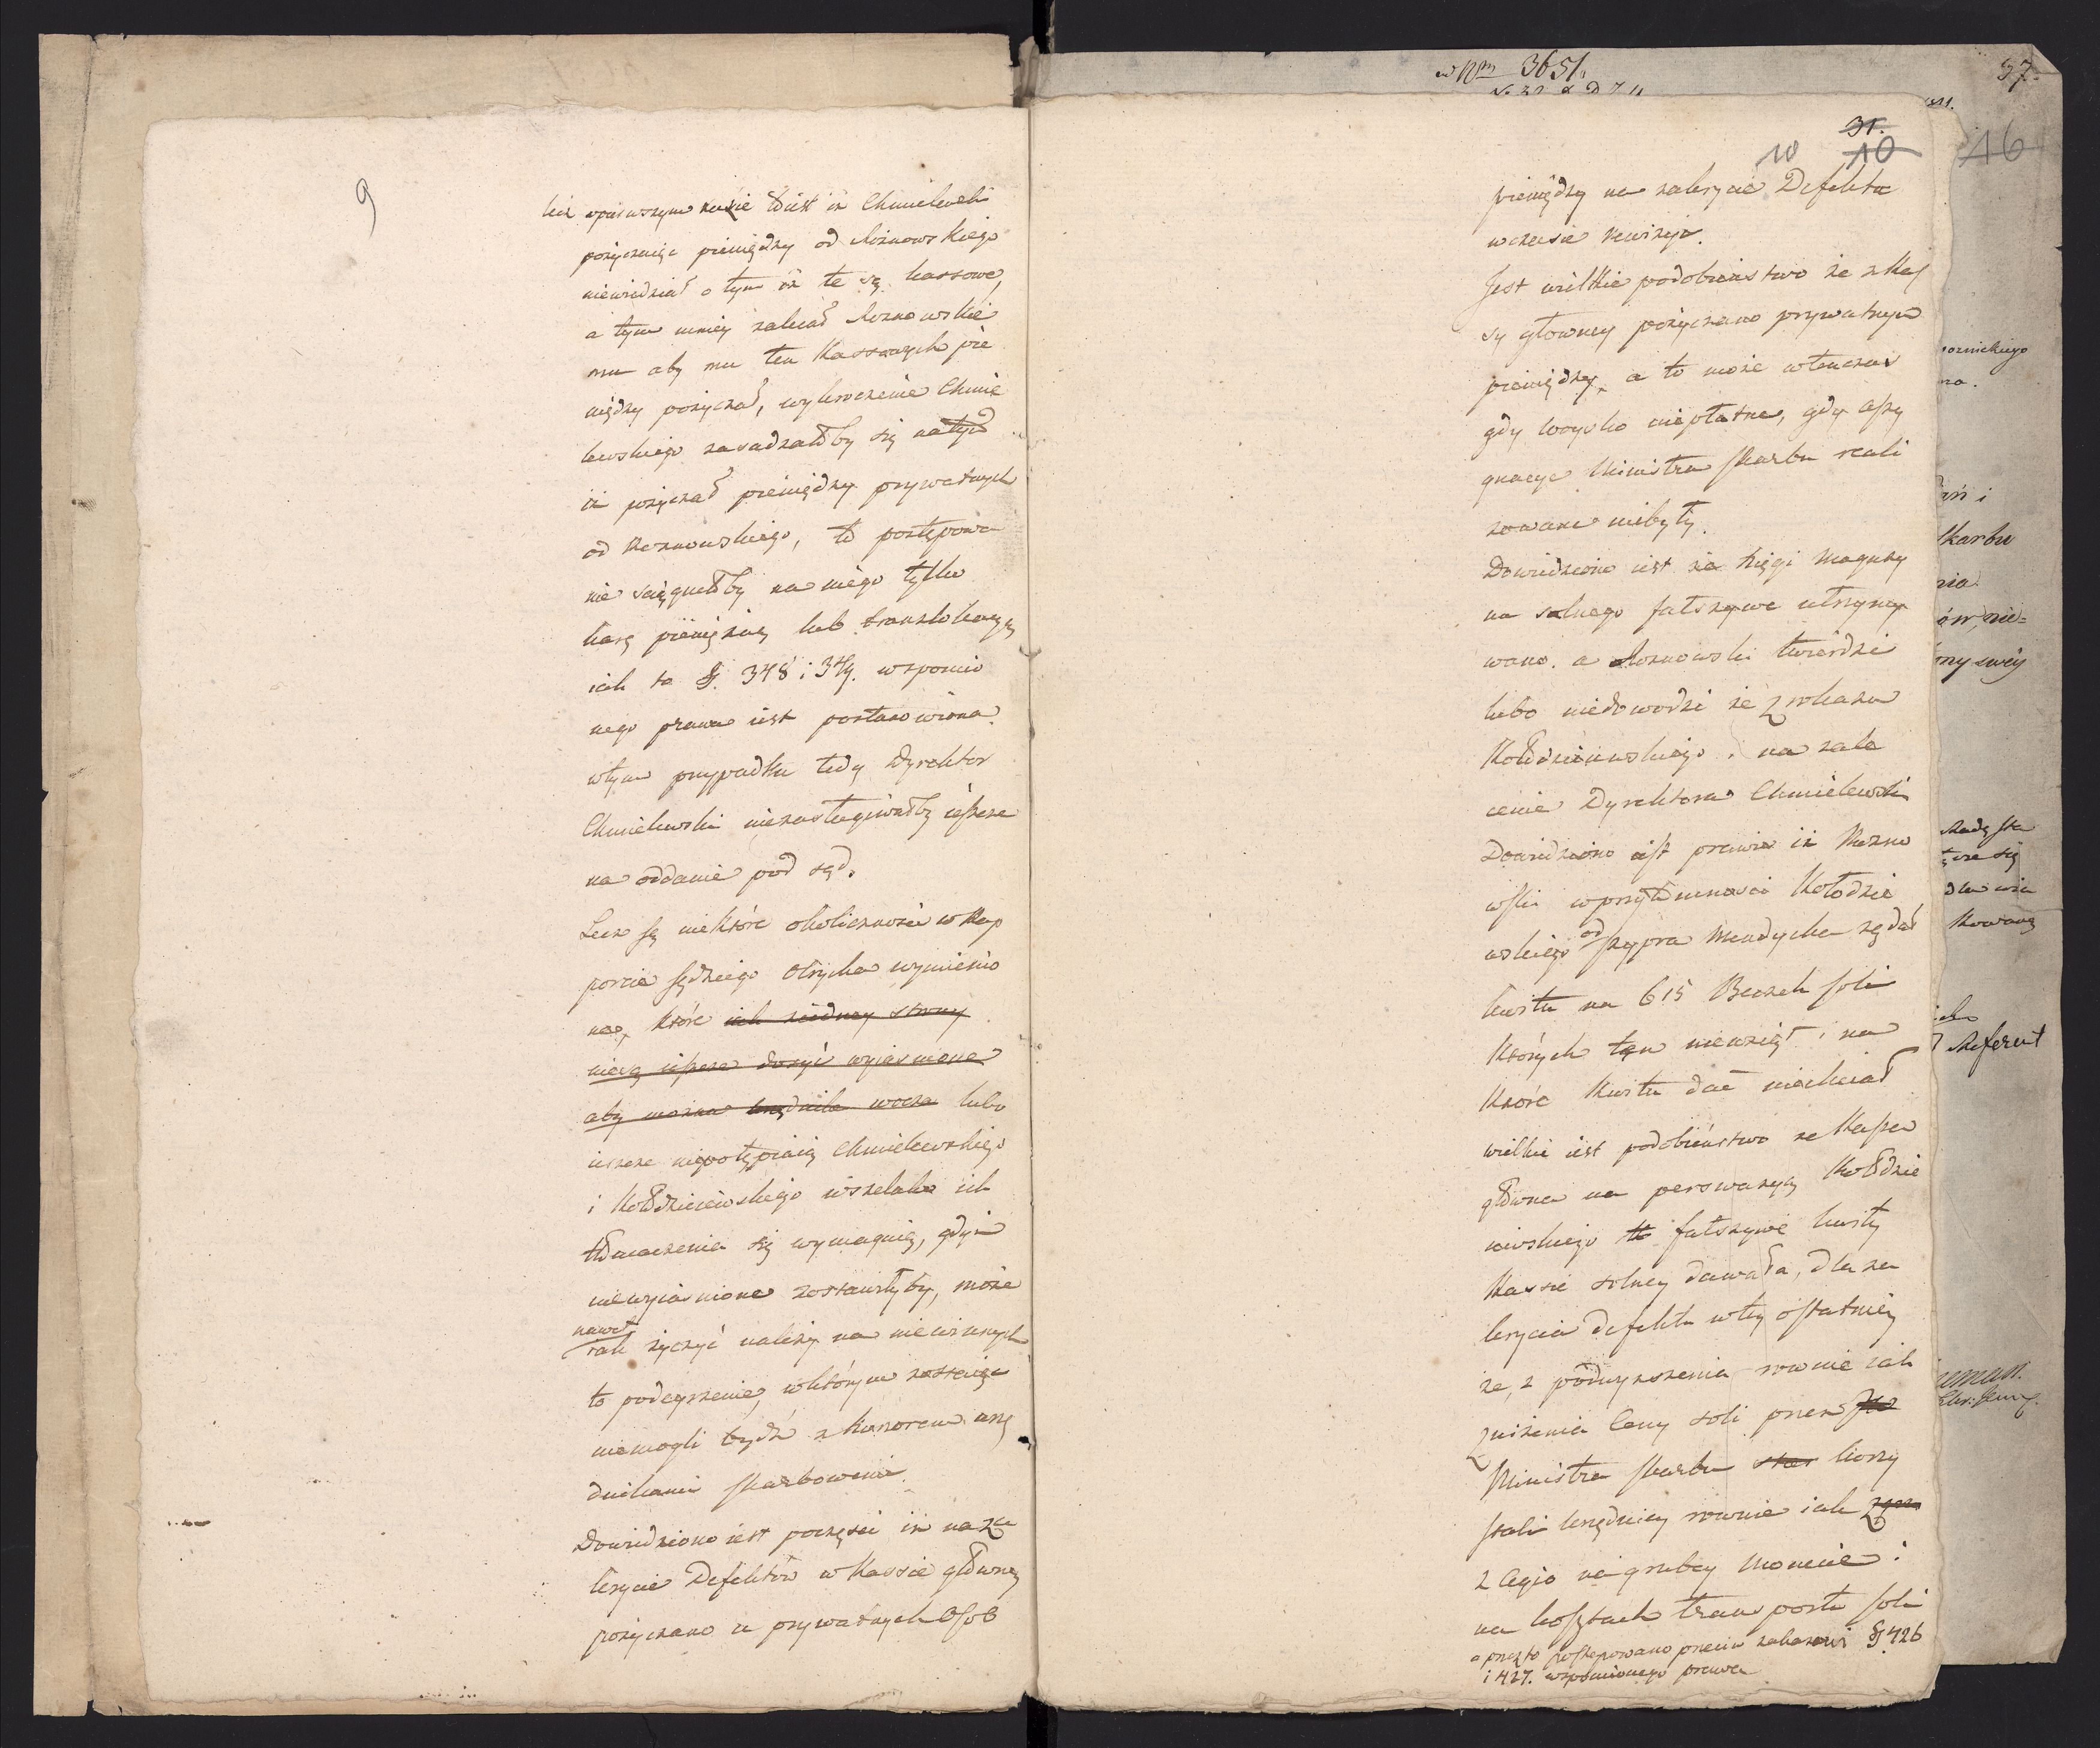 9
lecz w pierwszym razie iest iż Chmielewski
pożyczaiąc pieniędzy od Rożnowskiego
niewiedział o tym iż te są kassowe,
a tym mniey zalecał Rożnowskie
mu aby mu ten Kassowych pie
niędzy pożyczał, wykroczenie Chmie
lewskiego zasadzałoby się na tym
iż pożyczał pieniędzy prywatnych
od Rożnowskiego, to postępowa
nie sciągnełoby na niego tylko
karę pieniężną lub translokacyą
iak to §. 348 i 349. wspomnio
nego prawa iest postanowiona.
w tym przypadku tedy Dyrektor
Chmielewski niezasługiwałby ieszcze
na oddanie pod sąd.
Lecz są niektóre okoliczności w Rap
porcie sędziego Otrycha wymienio
ne, które iak z iedney strony
nie są ieszcze dosyć wyiasnione
aby można urzędnika lubo
ieszcze niepotępiaią Chmielewskiego
i Kołdzieiewskiego wszelako ich
tłomaczenia się wymagaią, gdyż
niewyiasnione zostawiłyby, może
nawet
iak życzyć należy na niewinnych
to podeyrzenie, w którym zostaiąc
niemogli bydź z honorem urzę
dnikami skarbowemi.
Dowiedziono iest poczęsci iż na za
krycie Defektów w Kassie główney
pożyczano u prywatnych Osob
w Nrn 3651.
37.
31.
10 10
46
pieniędzy na zakrycie Defektu
w czasie rewizyi.
Jest wielkie podobieństwo że z Kas
sy główney pożyczano prywatnym
pieniędzy, a to może wtenczas
gdy woysko niepłatne, gdy assy
gnacye Ministra skarbu reali
zowane niebyły.
Dowiedziono iest że księgi magazy
nu solnego fałszywe utrzymy
wano. a Rożnowski twierdzi
lubo niedowodzi że z rozkazu
Kołdzieiewskiego i na zale
cenie Dyrektora Chmielewski
Dowiedziono iest prawie iż Rożno
wski w przytomności Kołodzie
wskiego od szypra Mendycha żądał
kwitu na 615 Beczek soli
których ten niewziął i na
które kwitu dać niechciał
wielkie iest podobieństwo że Kassa
główna na perswazyą Kołdzie
iewskiego fałszywe kwity
Kassie solney dawała, dla za
krycia defektu w tey ostatniey
że, z podwyższenia rownie iak
zniżenia Ceny soli przez
Ministra skarbu korzy
stali urzędnicy rownie iak
z agio na grubey monecie i
na kosztach transportu soli
a przez to postępowano przeciw zakazowi § 426
i 427. wspomnionego prawa
skarbu
Referent